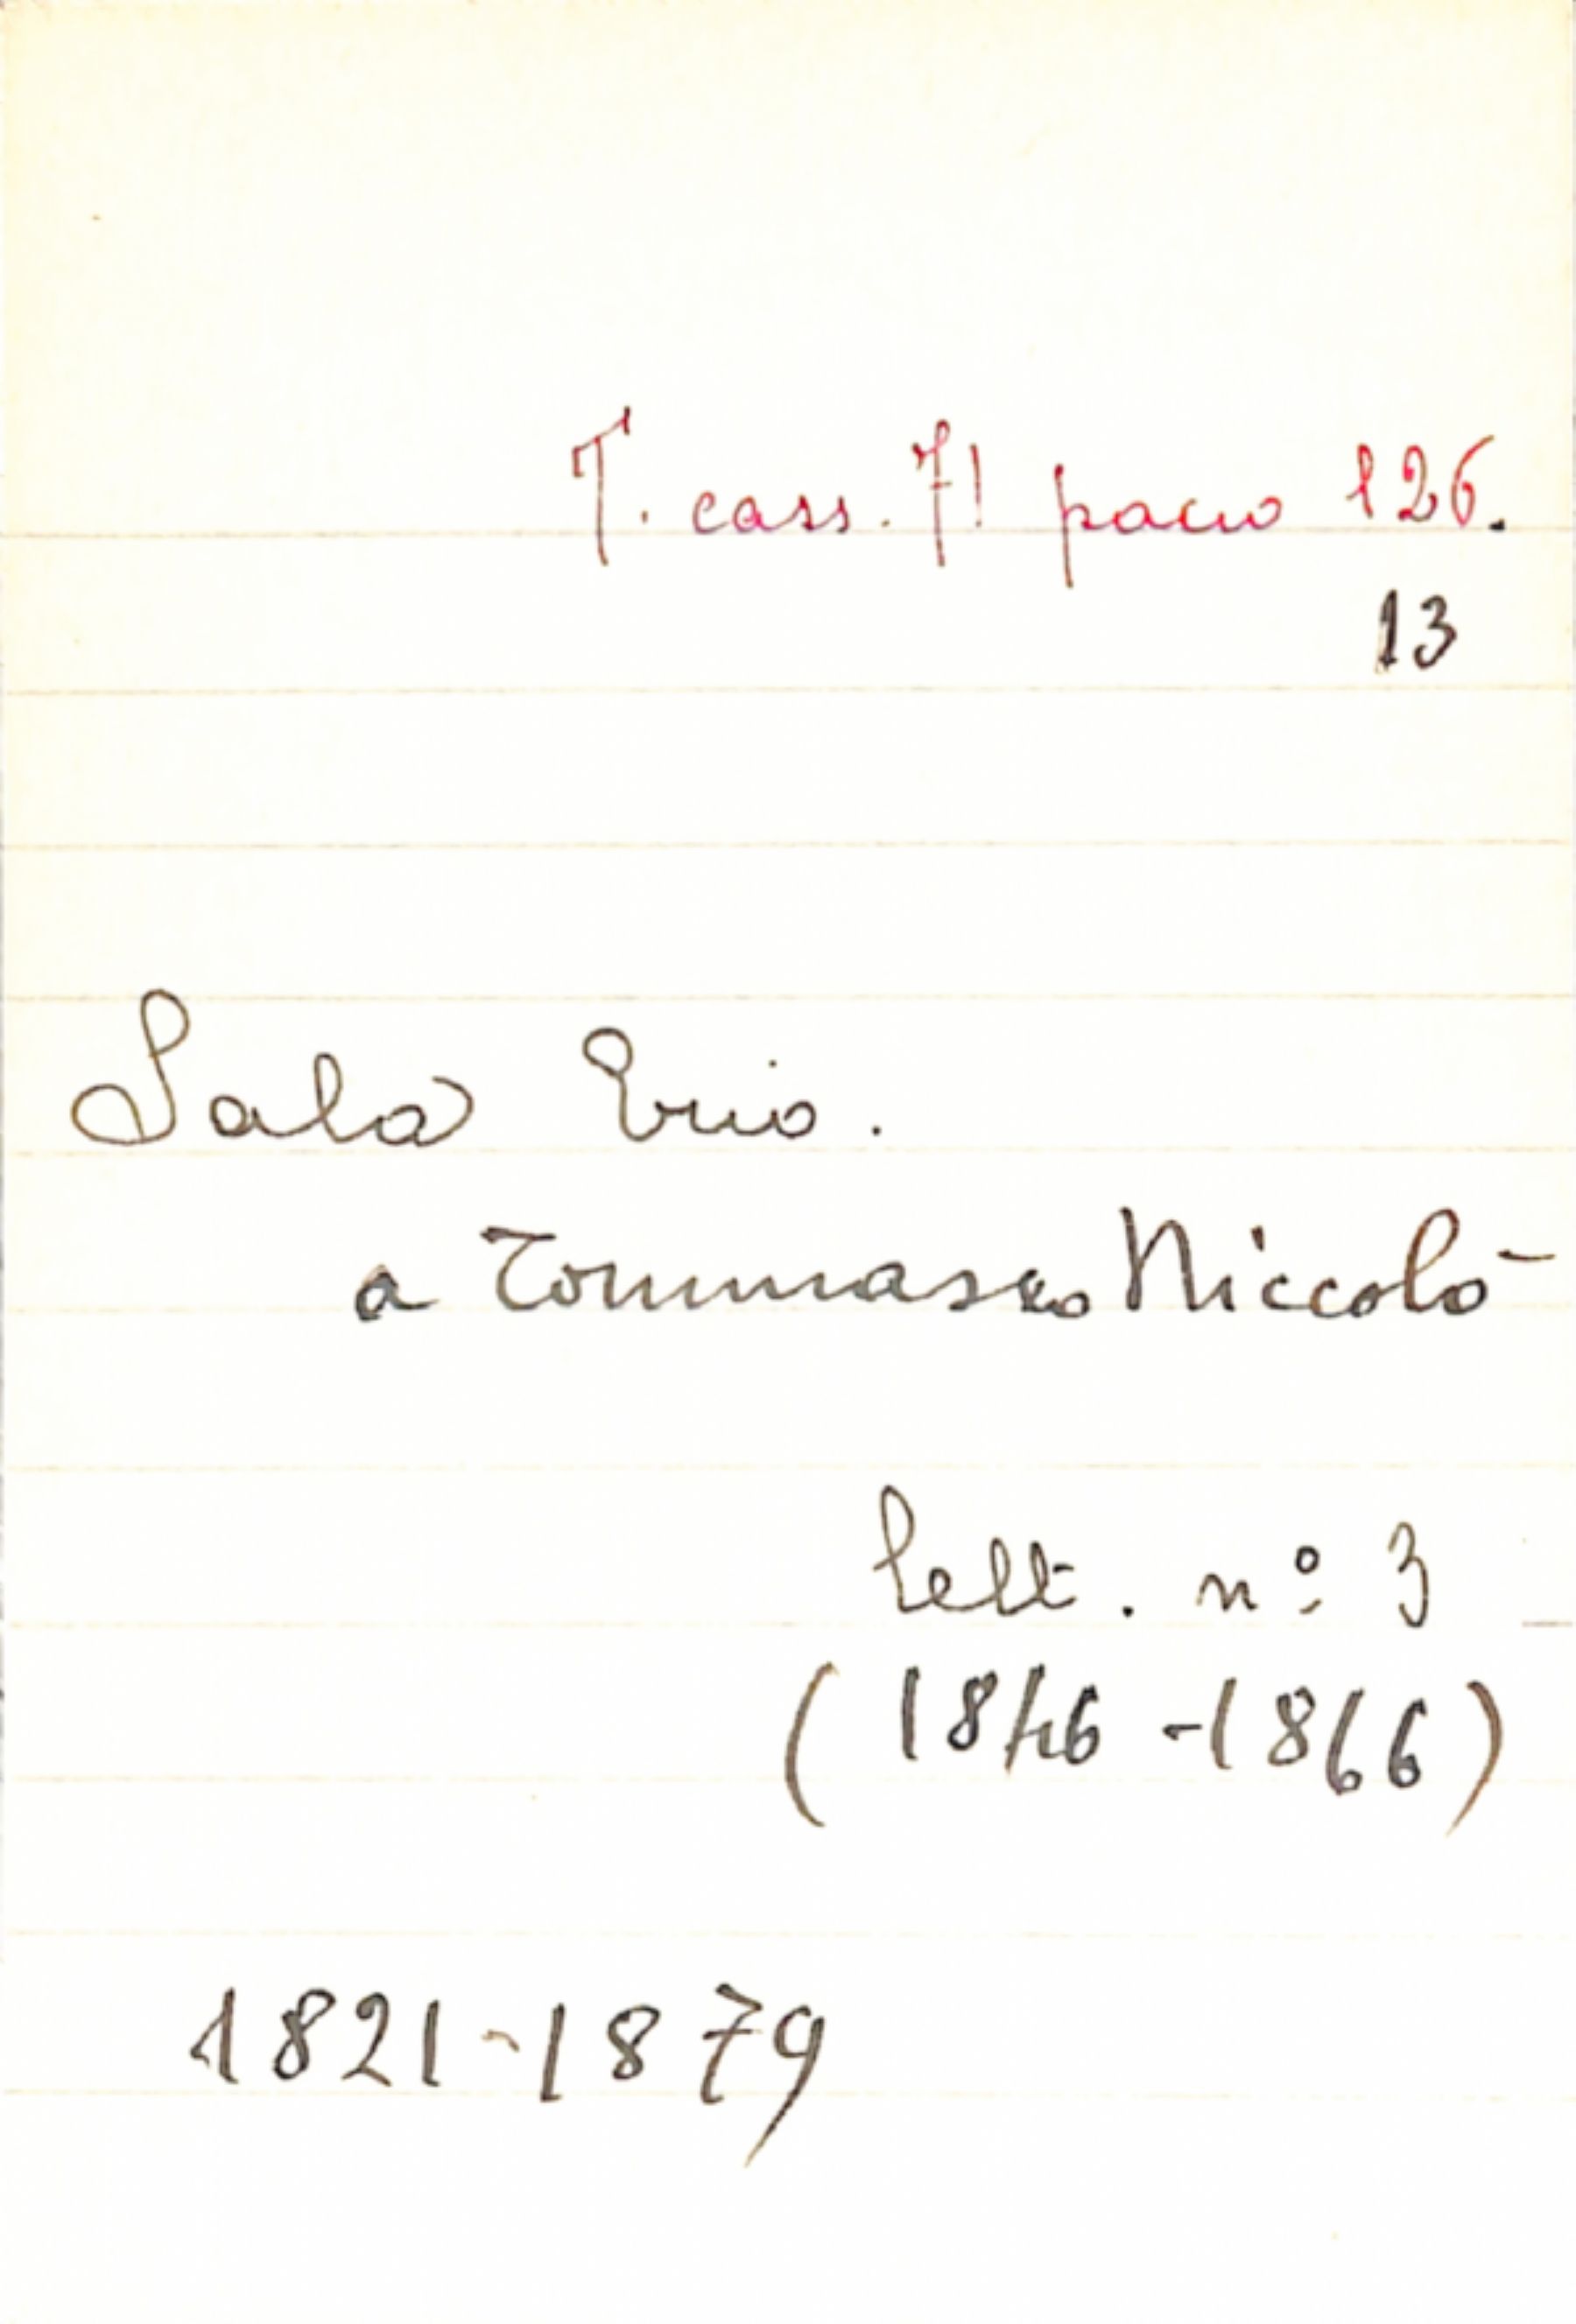 T. cass. 71 pacco 126.
13
Sala Erio.
a Tommaseo Niccolò
lett. nº 3
(1846-1866)
1821-1879